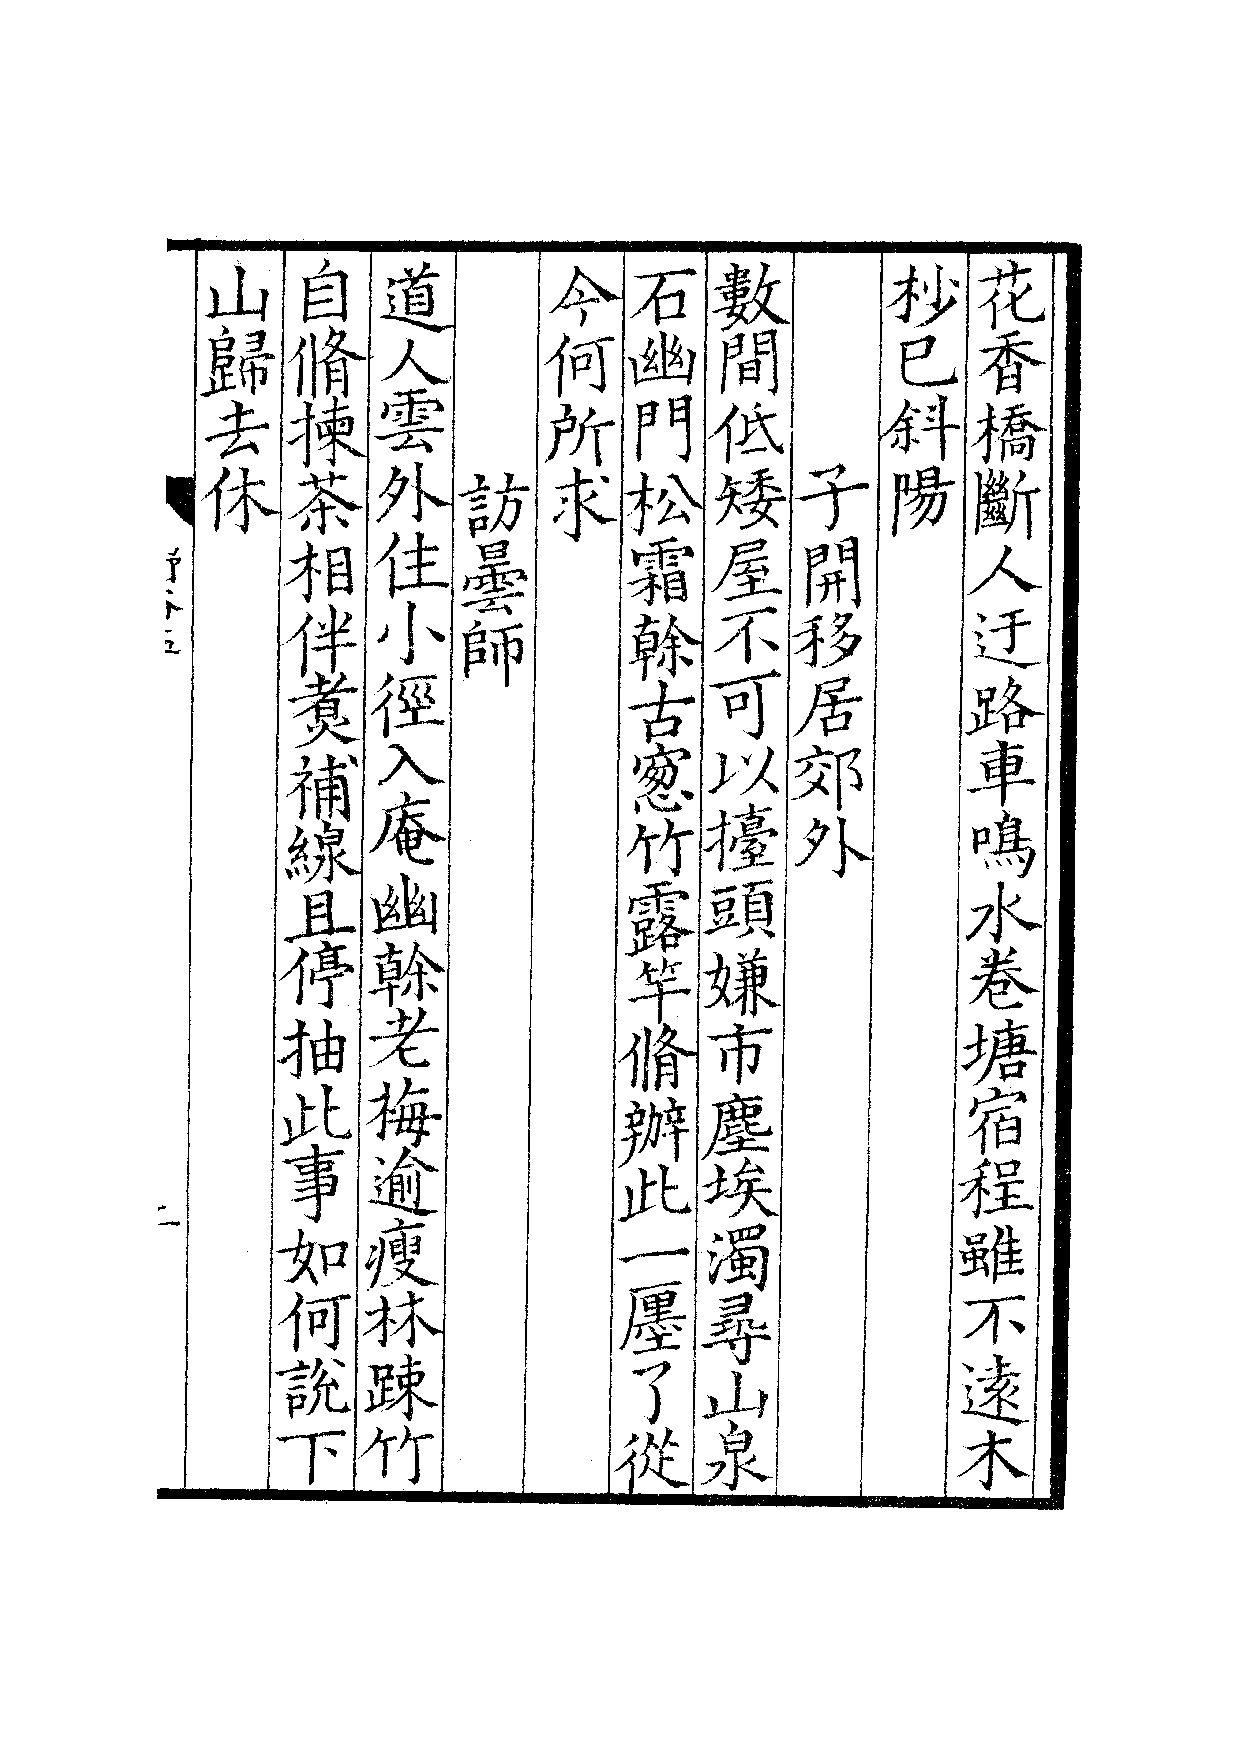 花香橋斷人迂路車鳴水卷塘宿程雖不遠木
杪已斜陽
子開移居郊外
數間低矮屋不可以擡頭嫌市塵埃濁尋山泉
石幽門松霜榦古窻竹露竿脩辦此一廛了從
今何所求
訪曇師
道人雲外住小徑入庵幽榦老梅逾瘦林踈竹
自脩揀茶相伴煑補線且停抽此事如何說下
山歸去休